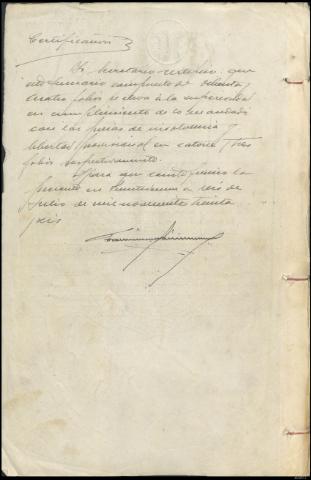 Certificación
Yo Secretario certifico: que
este sumario compuesto de ochenta y
cuatro folios se eleva á la superioridad
en cumplimiento de lo mandado
con las piezas de insolvencia
y libertad provisional en catorce y tres
folios respectivamente.
Y para que conste firmo la
presente en a seis de
Julio de mil novecientos treinta
y seis